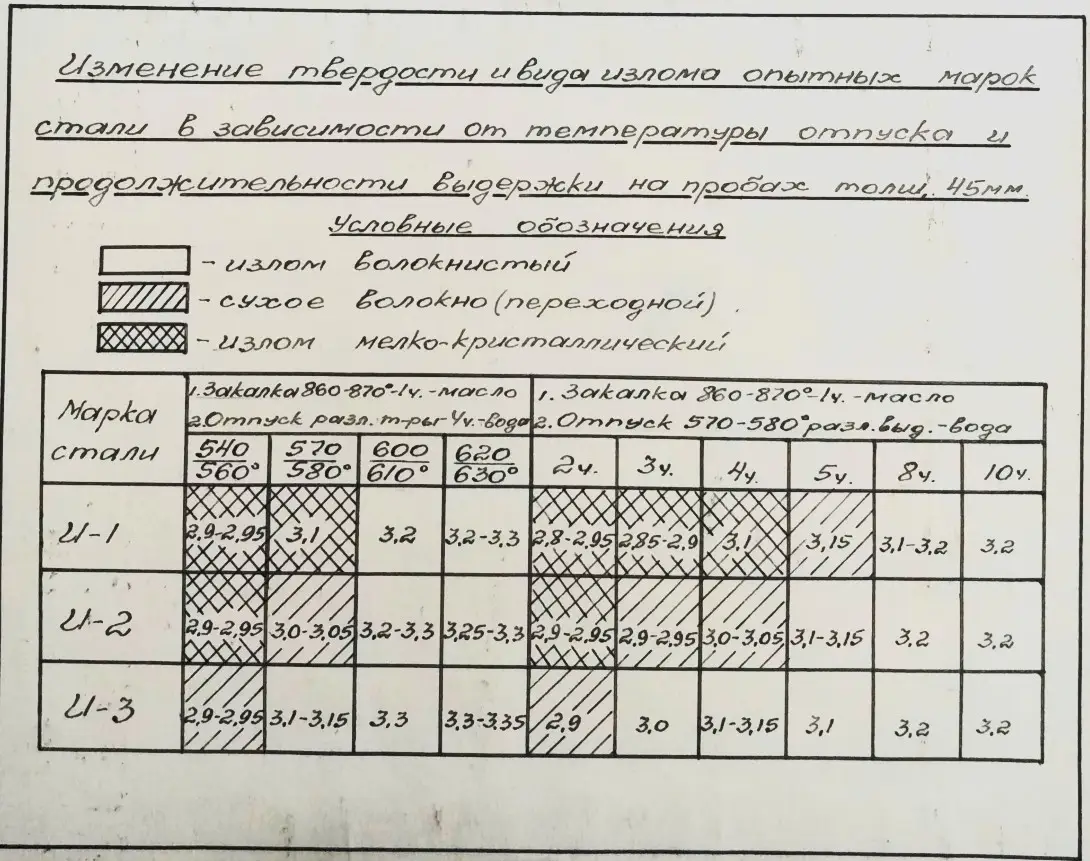 Изменение твердости и вида излома опытных марок
стали в зависимости от температуры отпуска и
продолжительности выдержки на пробах толщ. 45мм.
Условные обозначения
- излом волокнистый
- сухое волокно (переходной)
- излом мелко-кристаллический
Марка стали
1. Закалка 860-870°-1ч. -масло
2. Отпуск разл. т-ры-4ч.-вода
1. Закалка 860-870°-1ч. -масло
2. Отпуск 570-580° разл. выд. -вода
540/560° 570/580° 600/610° 620/630° 2ч. 3ч. 4ч. 5ч. 8ч. 10ч.
И-1 2,9-2,95 3,1 3,2 3,2-3,3 2,8-2,95 2,85-2,9 3,1 3,15 3,1-3,2 3,2
И-2 2,9-2,95 3,0-3,05 3,2-3,3 3,25-3,3 2,9-2,95 2,9-2,95 3,0-3,05 3,1-3,15 3,2 3,2
И-3 2,9-2,95 3,1-3,15 3,3 3,3-3,35 2,9 3,0 3,1-3,15 3,1 3,2 3,2